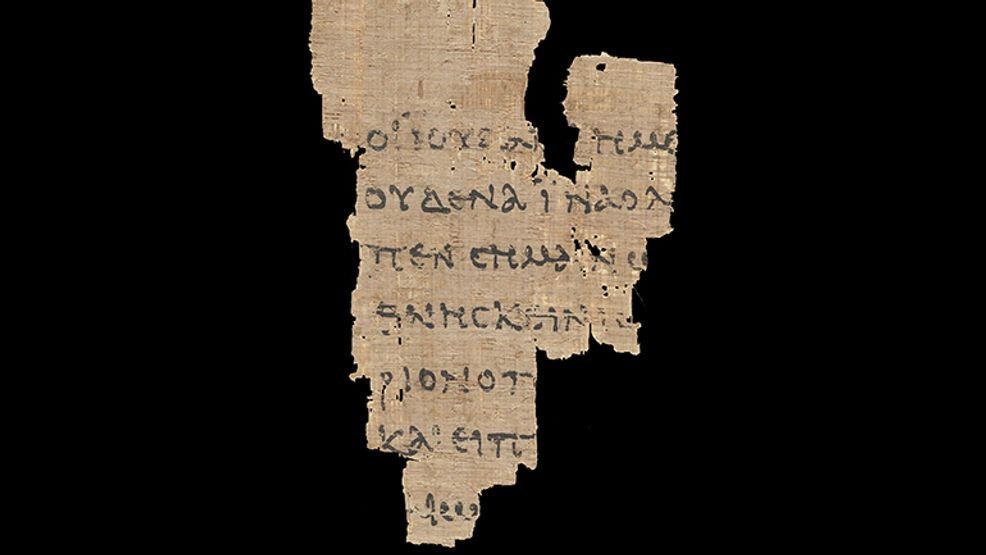 ΟΙ ΙΟΥΔΑΙ ΗΜΕ
ΟΥΔΕΝΑ ΙΝΑ Ο Λ
ΠΕΝ ΣΗΜΑΙΝΩ
ΘΝΗΣΚΕΙΝ ΙΣ
ΡΙΟΝ Ο Π
ΚΑΙ ΕΙΠ
ΑΙΩ